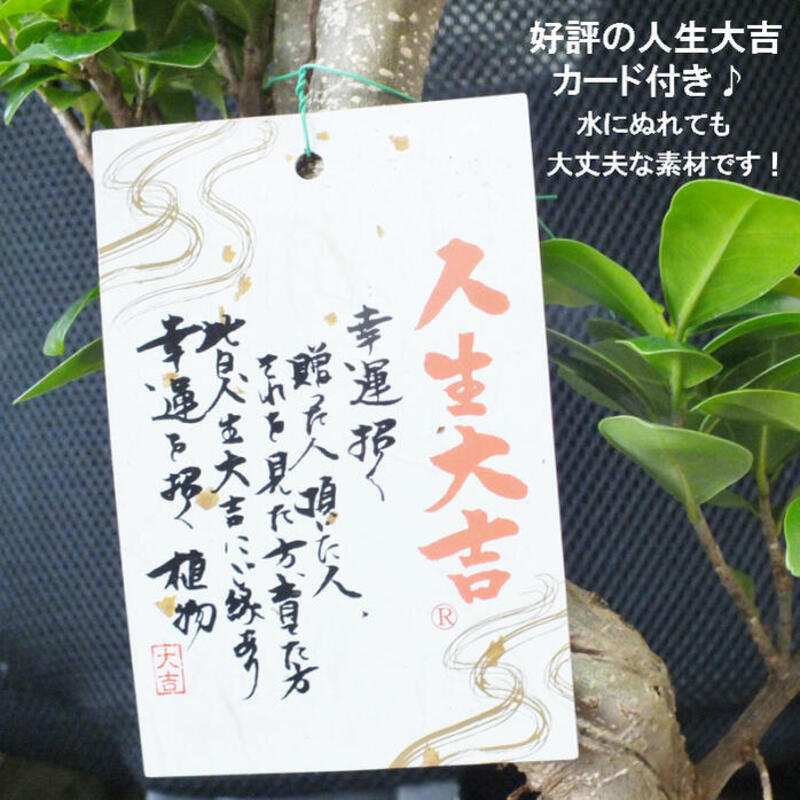 好評の人生大吉
カード付き♪
水にぬれても
大丈夫な素材です！
人生大吉
®
幸運招く
贈った人頂いた人、
それを見た方、貴た方
皆人生大吉にご縁あり
幸運を招く植物
大吉